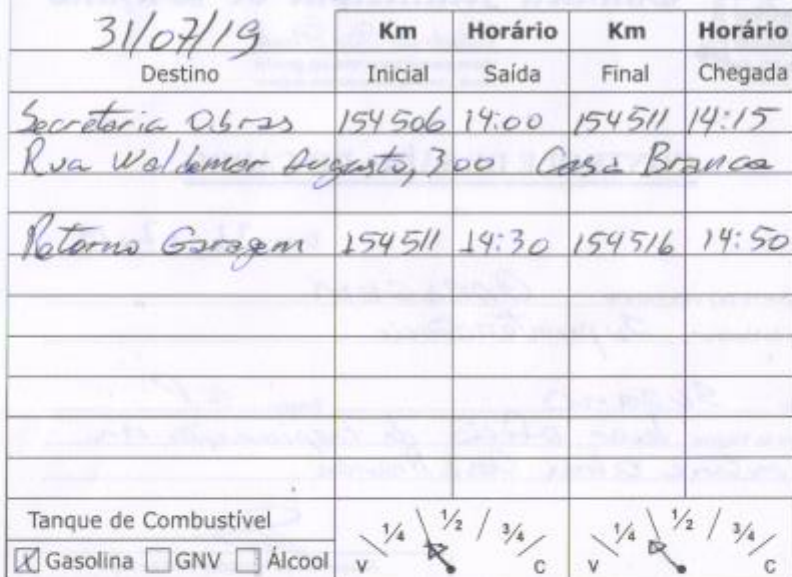 31/07/19 Km Horário Km Horário
Destino Inicial Saída Final Chegada
Secretaria Obras 154506 14:00 154511 14:15
Rua Waldemar Augusto, 300 Casa Branca
Retorno Garagem 154511 14:30 154516 14:50
Tanque de Combustível
Gasolina GNV Álcool
V 1/4 1/2 3/4 C V 1/4 1/2 3/4 C